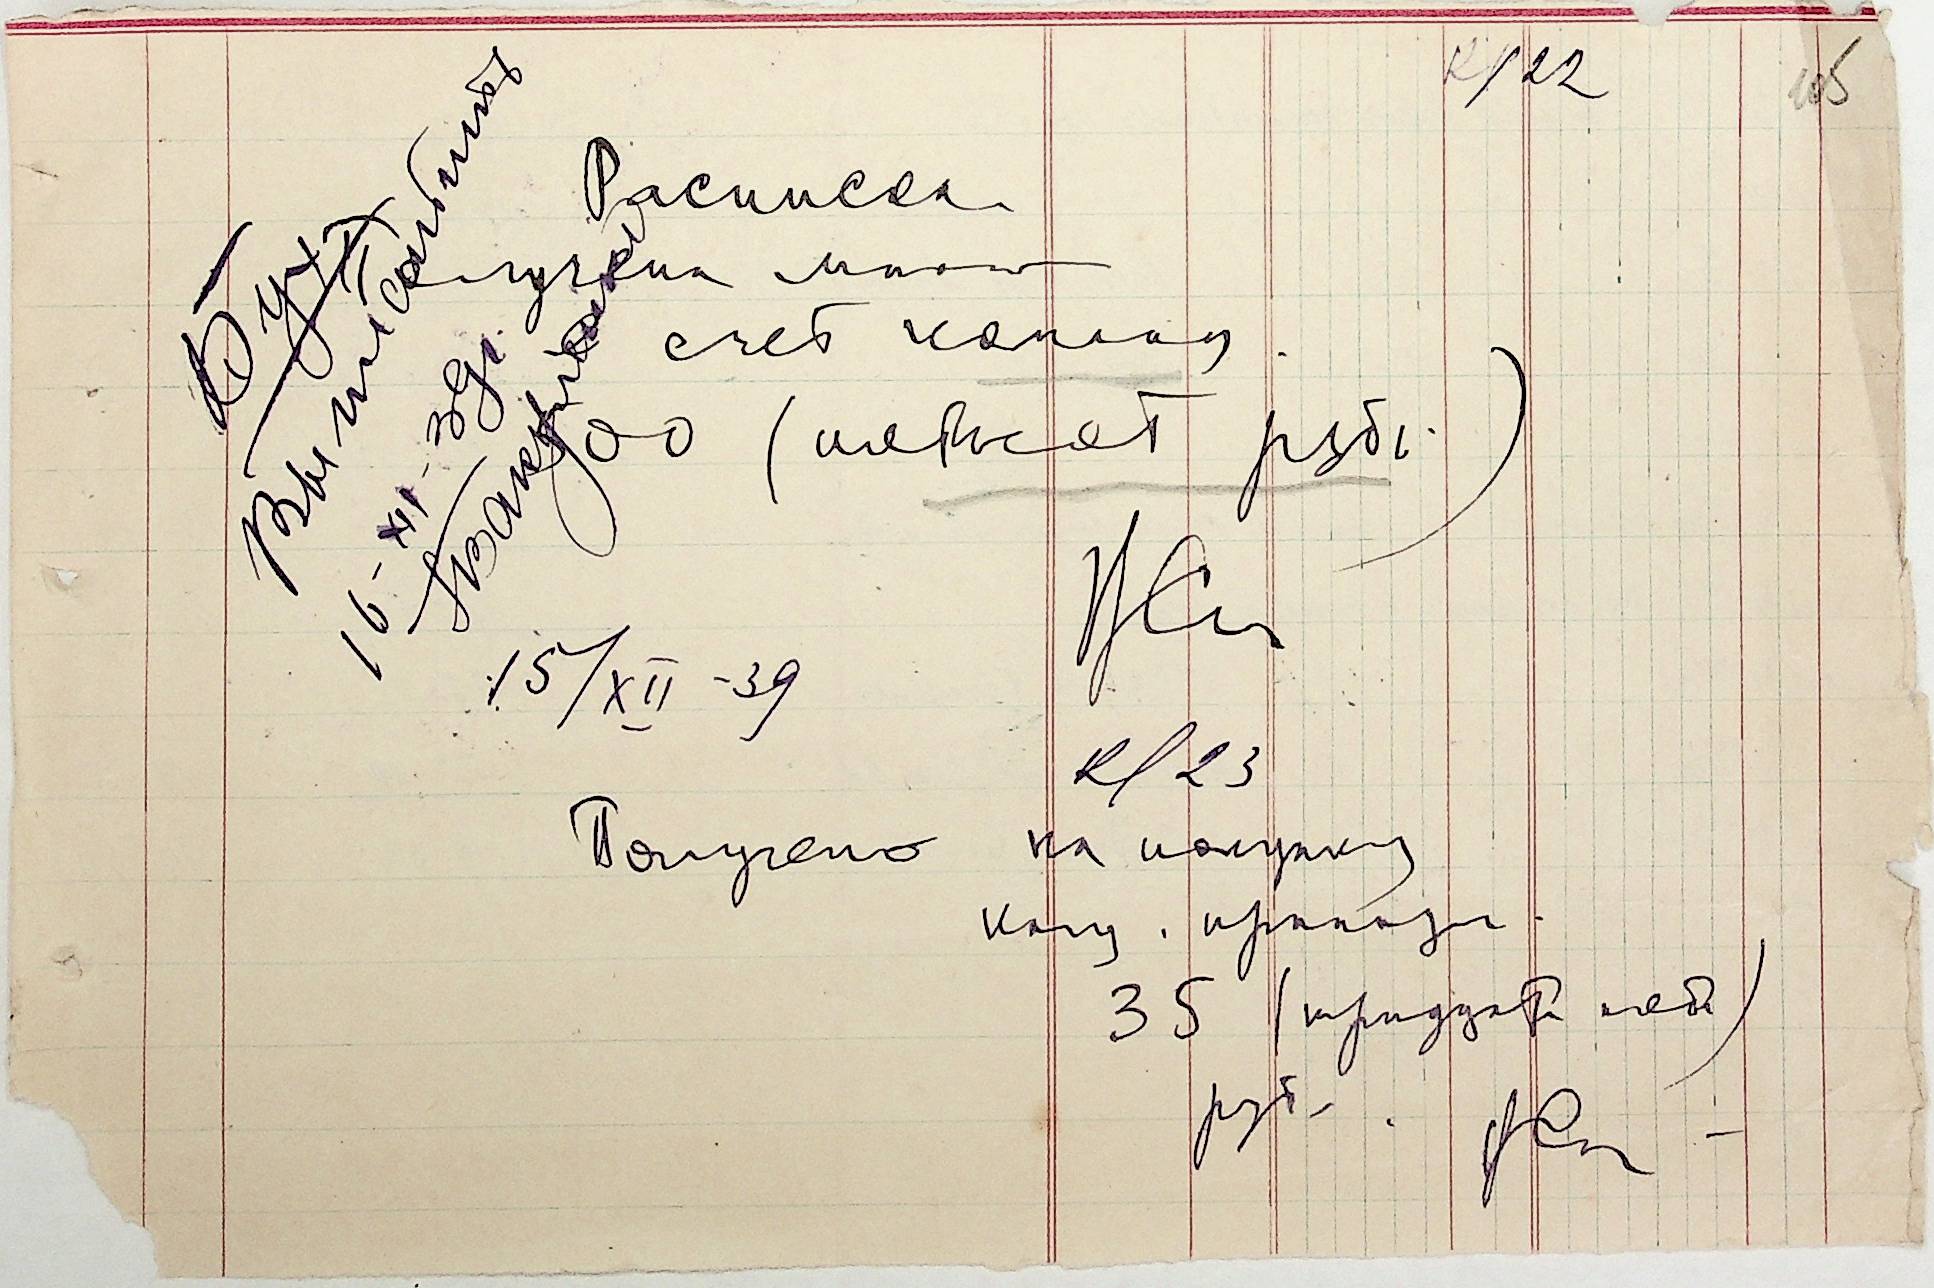 К/22
105
Расписка.
Получена мною
счет команд.
500 (пятьсот рубл.)
15/XII-39
Бух
Выписать
16-XII-39г.
К/23
Получено на покупку
канц. принадл.
35 (тридцать пять)
руб.